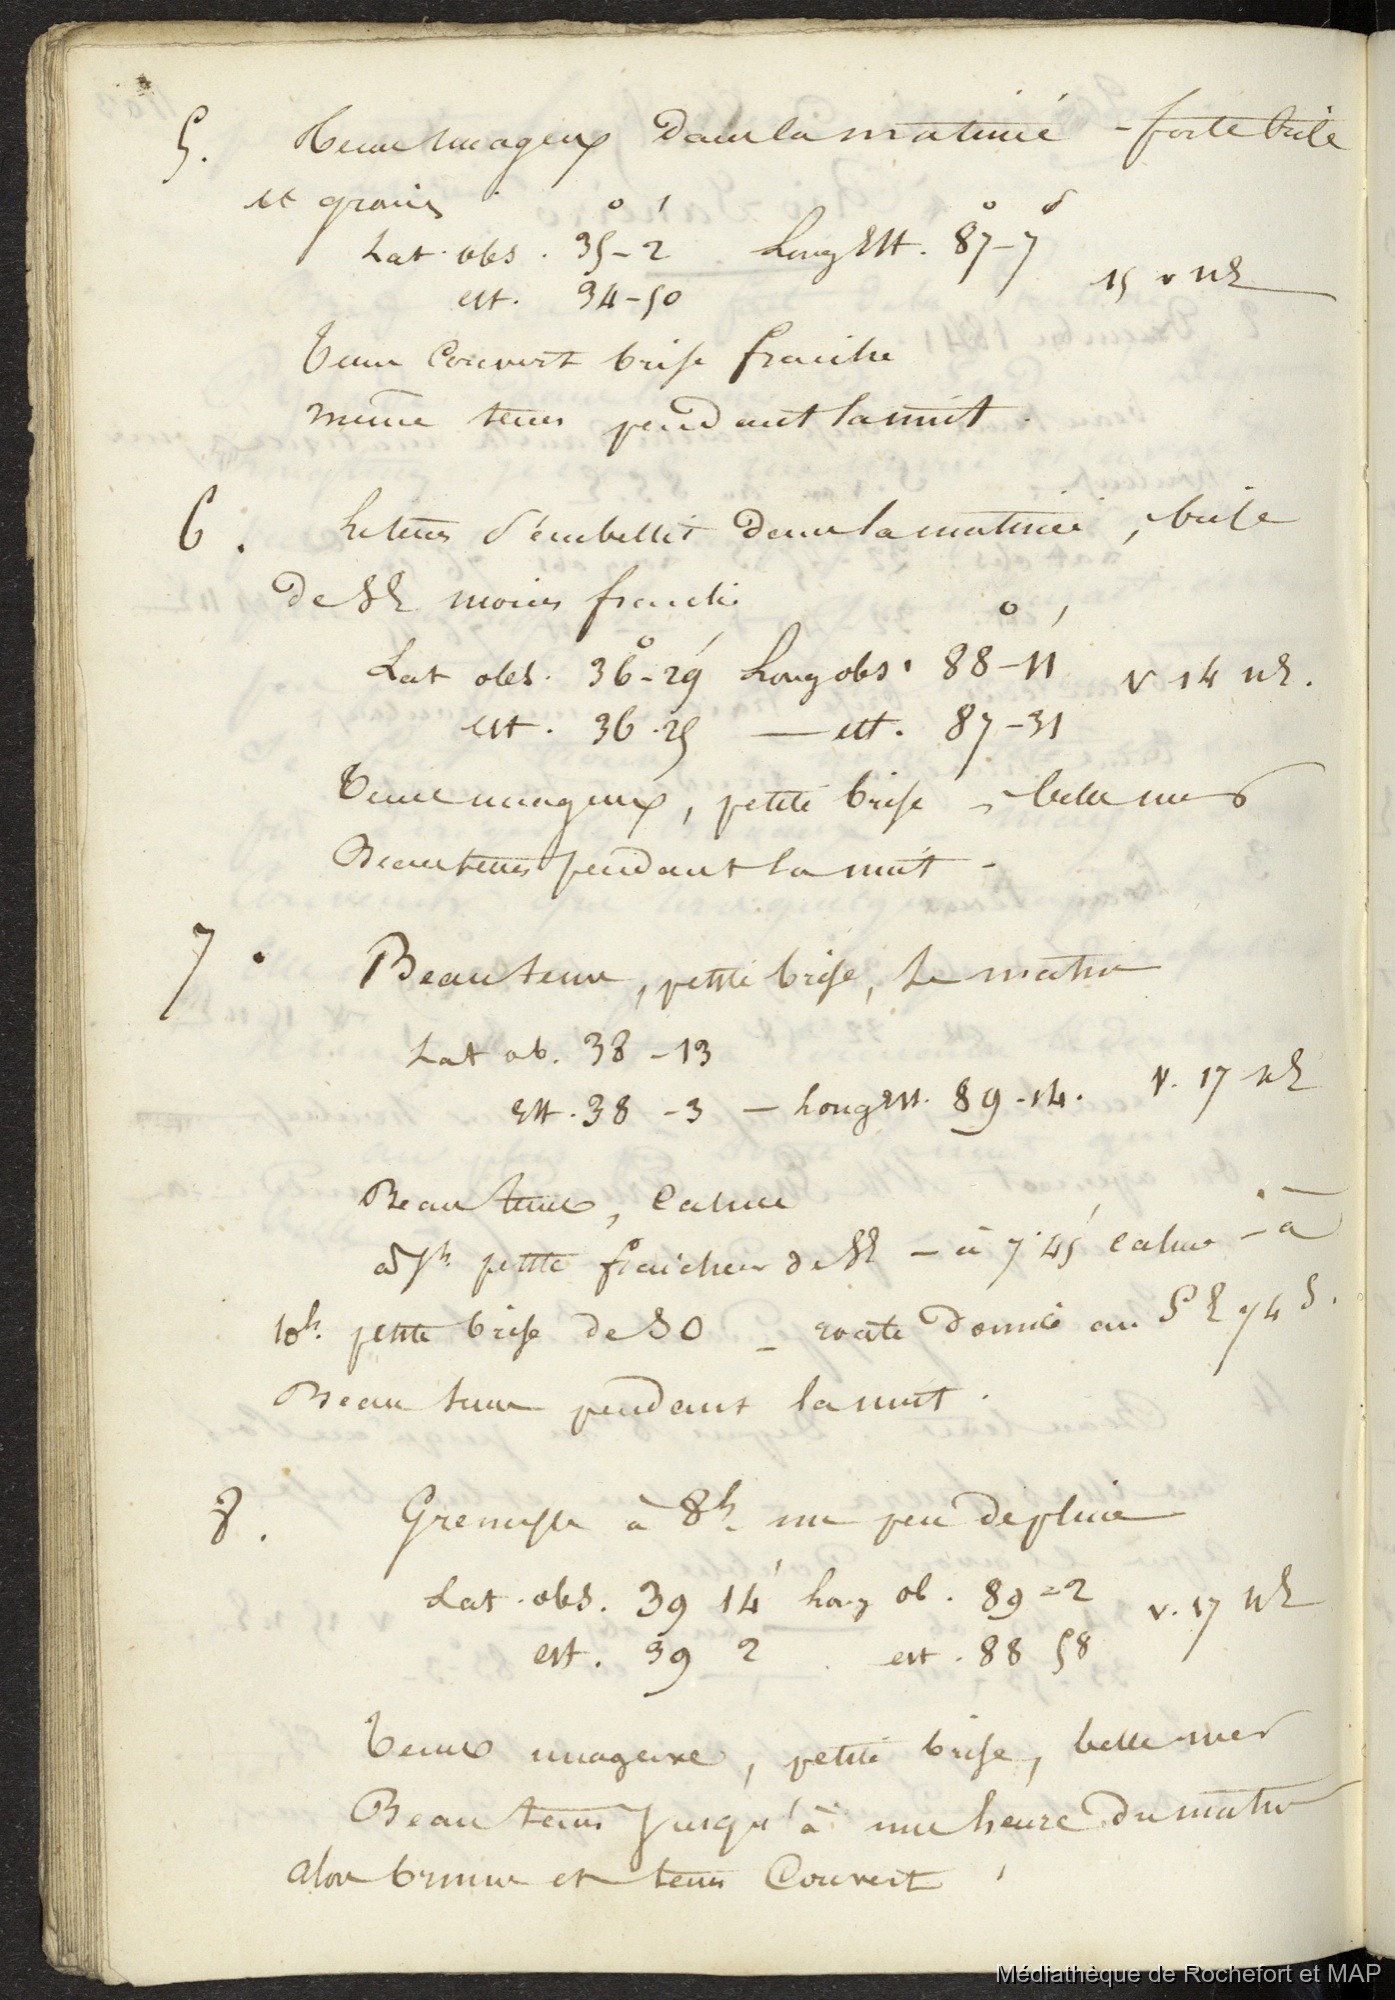 5. Tems nuageux dans la matinée - forte brise
et grains
Lat. obs. 35°-2' Long Est. 87°-7'
est. 34-50 15 v NE
Tems Couvert brise fraiche
même tems pendant la nuit.
6. Le tems s'embellit dans la matinée, brise
de SE moins fraiche
Lat obs. 36°-29' Long obs. 88°-11' v 14 NE.
est. 36.25 — est. 87-31
Tems nuageux, petite brise, belle mer
Beau tems pendant la nuit -
7. Beau tems, petite brise, le matin
Lat ob. 38-13
Est. 38-3 — Long Est. 89-14. v. 17 NE
Beau tems, Calme
à 5h petite fraicheur de SE - à 7h 45' calme - à
10h. petite brise de SO - route donnée au S E 1/4 S.
Beau tems pendant la nuit.
8. Grenasse à 8h. un peu de pluie
Lat. obs. 39 14' Long ob. 89=2 v. 17 NE
est. 39 2 est. 88 58
Tems nuageux, petite brise, belle mer
Beau tems jusqu'à une heure du matin
alors brume et tems Couvert
Médiathèque de Rochefort et MAP